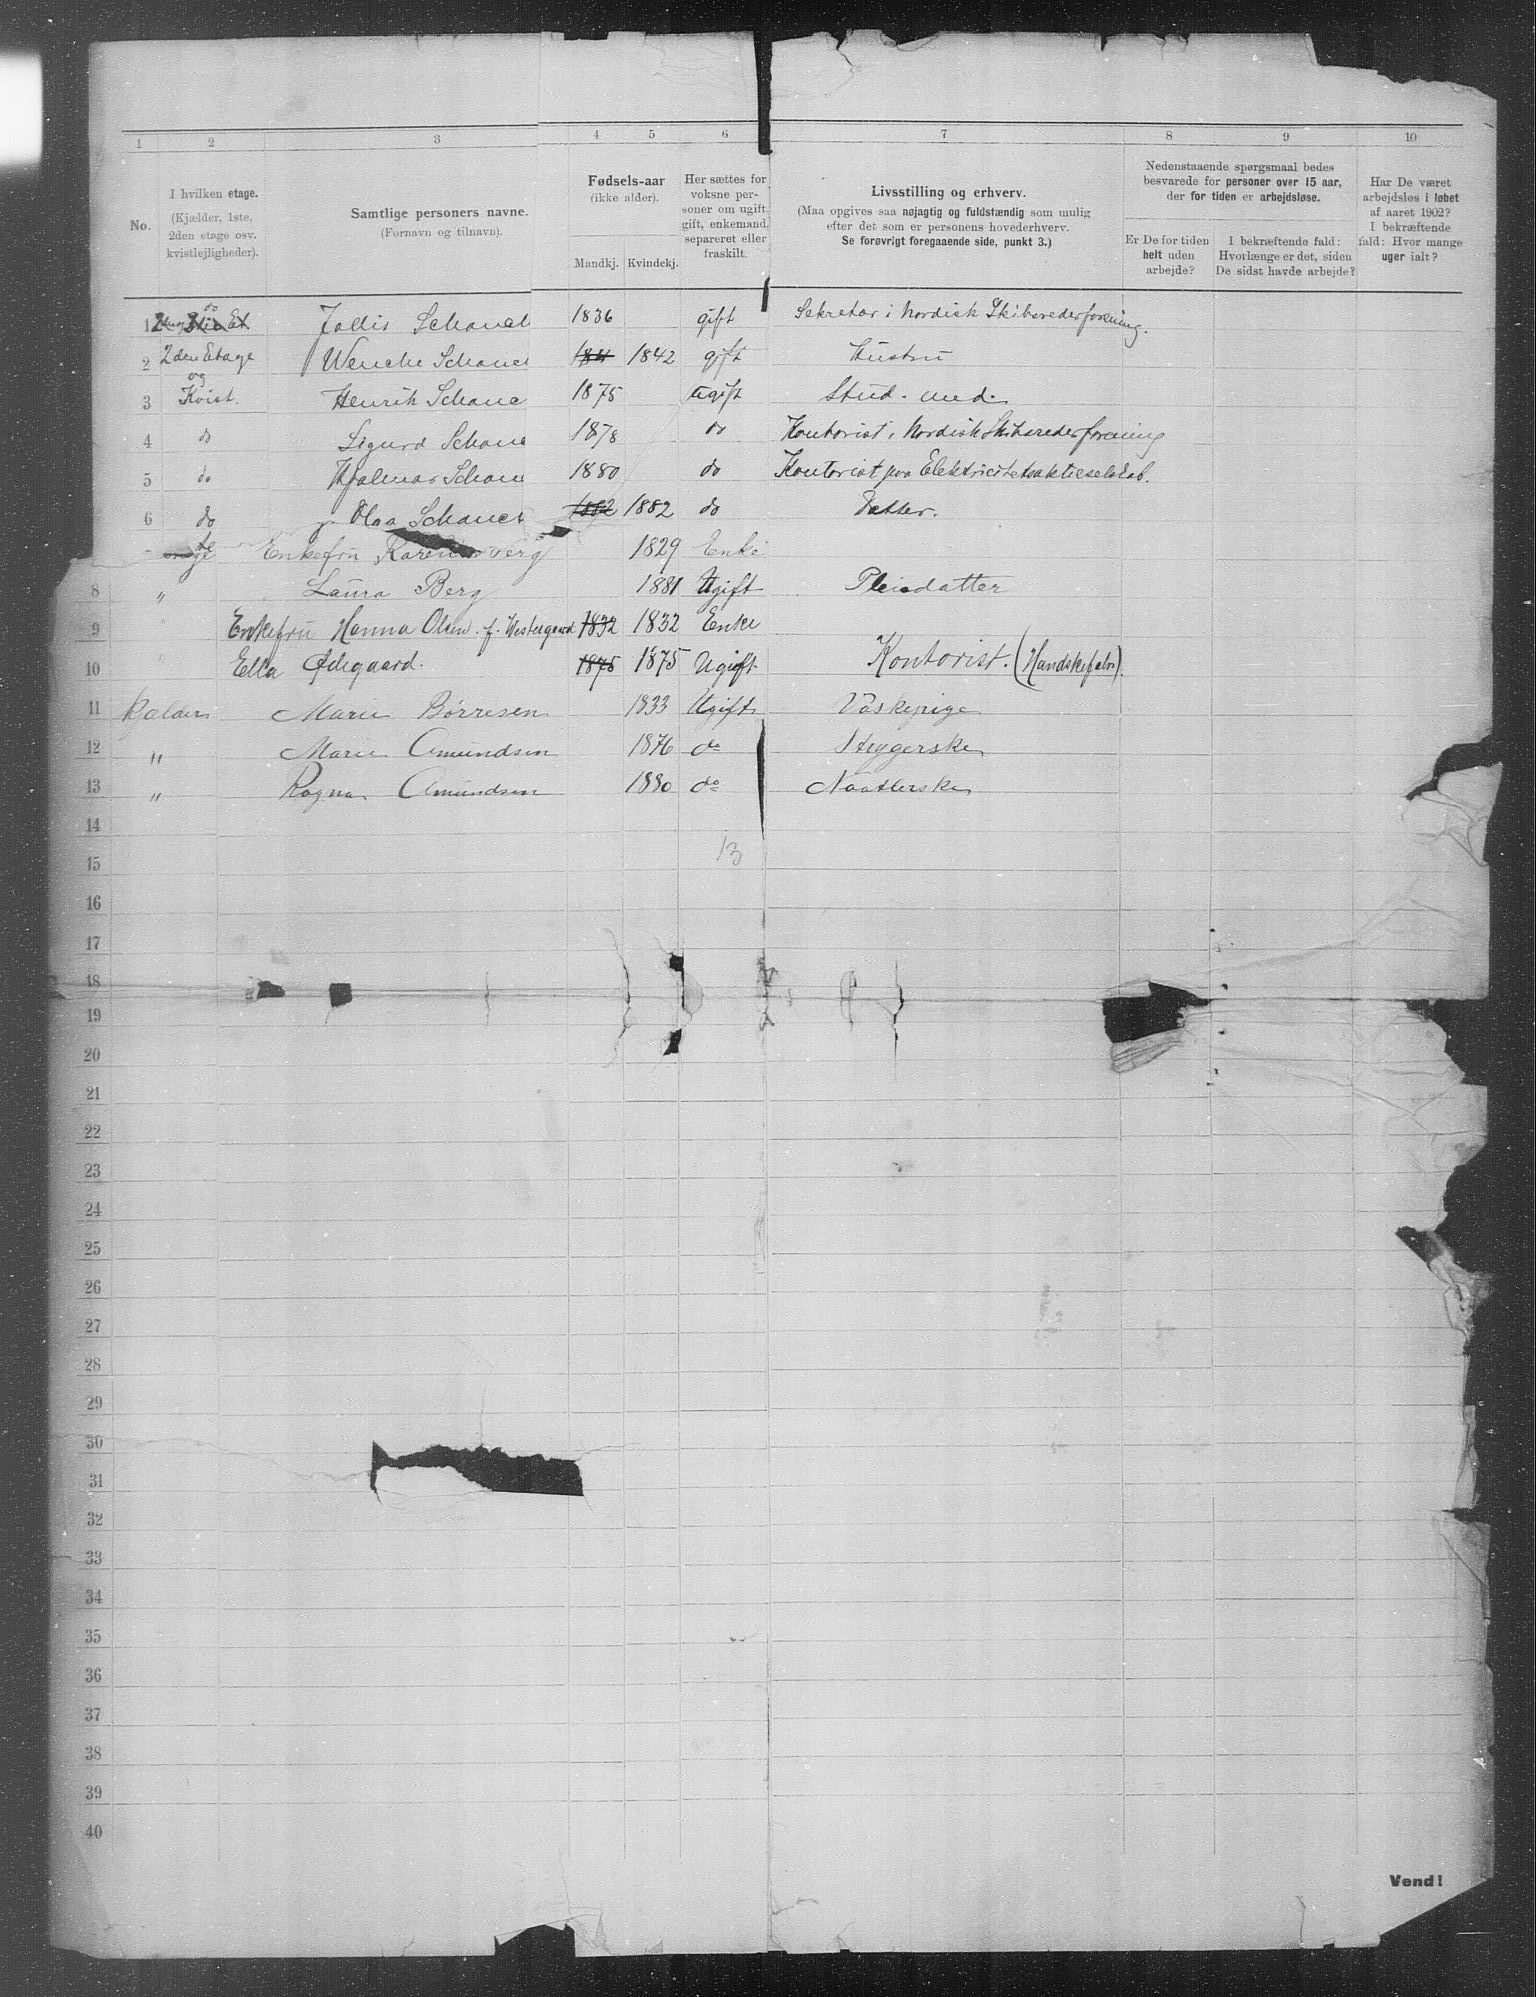 1 2 3 4 5 6 7 8 9 10
No.
I hvilken etage.
(Kjælder, 1ste,
2den etage osv.
kvistlejligheder).
Samtlige personers navne.
(Fornavn og tilnavn).
Fødsels-aar
(ikke alder).
Mandkj. Kvindekj.
Her sættes for
voksne per-
soner om ugift,
gift, enkemand,
separeret eller
fraskilt.
Livsstilling og erhverv.
(Maa opgives saa nøjagtig og fuldstændig som mulig
efter det som er personens hovederhverv.
Se forøvrigt foregaaende side, punkt 3.)
Nedenstaaende spørgsmaal bedes
besvarede for personer over 15 aar,
der for tiden er arbejdsløse.
Er De for tiden
helt uden
arbejde?
I bekræftende fald:
Hvorlænge er det, siden
De sidst havde arbejde?
Har De været
arbejdsløs i løbet
af aaret 1902?
I bekræftende
fald: Hvor mange
uger ialt?
1 Schanch 1836 gift Sekretær i Nordisk Skibsrederforening.
2 2den Etage Wenche Schanc 1842 gift Hustru
og
3 Kvist. Henrik Schanc 1875 ugift Stud. med.
4 do Sigurd Schanc 1878 do Kontorist i Nordisk Skibsrederforening
5 do Hjalmar Schanc 1880 do Kontorist paa Elektricitetsaktieselskab.
6 do Olga Schanch 1882 1882 do Datter.
Enkefru Karen Berg 1829 Enke
8 " Laura Berg 1881 Ugift Pleiedatter
9 " Enkefru Hanna Olsen f. Westergaard 1832 1832 Enke
10 " Ella Ødegaard. 1875 1875 Ugift Kontorist. (Handskefabr).
11 Kjælder Marie Børresen 1833 Ugift Vaskepige
12 " Marie Amundsen 1876 do Strygerske
13 " Ragna Amundsen 1880 do Naatlerske
14
13
15
16
17
18
19
20
21
22
23
24
25
26
27
28
29
30
31
32
33
34
35
36
37
38
39
40
Vend!